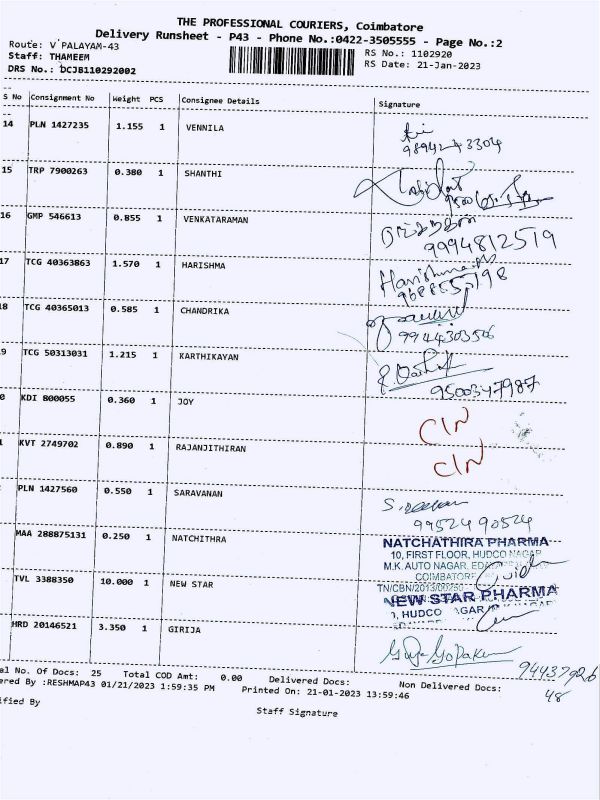 THE PROFESSIONAL COURIERS, Coimbatore
Delivery Runsheet - P43 - Phone No.:0422-3505555 - Page No.:2
Route: V PALAYAM-43
RS No.: 1102920
Staff: THAMEEM
RS Date: 21-Jan-2023
DRS No.: DCJB110292002
S No Consignment No Weight PCS Consignee Details Signature
14 PLN 1427235 1.155 1 VENNILA
15 TRP 7900263 0.380 1 SHANTHI
16 GMP 546613 0.855 1 VENKATARAMAN
9994812519
17 TCG 40363863 1.570 1 HARISHMA
Harishma
8 TCG 40365013 0.585 1 CHANDRIKA
9944303506
9 TCG 50313031 1.215 1 KARTHIKAYAN
9500347987
0 KDI 800055 0.360 1 JOY
CIN
KVT 2749702 0.890 1 RAJANJITHIRAN
CIN
PLN 1427560 0.550 1 SARAVANAN
99524 90524
MAA 288875131 0.250 1 NATCHITHRA
NATCHATHIRA PHARMA
10, FIRST FLOOR, HUDCO NAGAR
M.K. AUTO NAGAR,
COIMBATORE
TVL 3388350 10.000 1 NEW STAR
NEW STAR PHARMA
HUDCO
HRD 20146521 3.350 1 GIRIJA
Girija Gopakum
94437926
48
al No. Of Docs: 25 Total COD Amt: 0.00 Delivered Docs: Non Delivered Docs:
ered By :RESHMAP43 01/21/2023 1:59:35 PM Printed On: 21-01-2023 13:59:46
ified By
Staff Signature